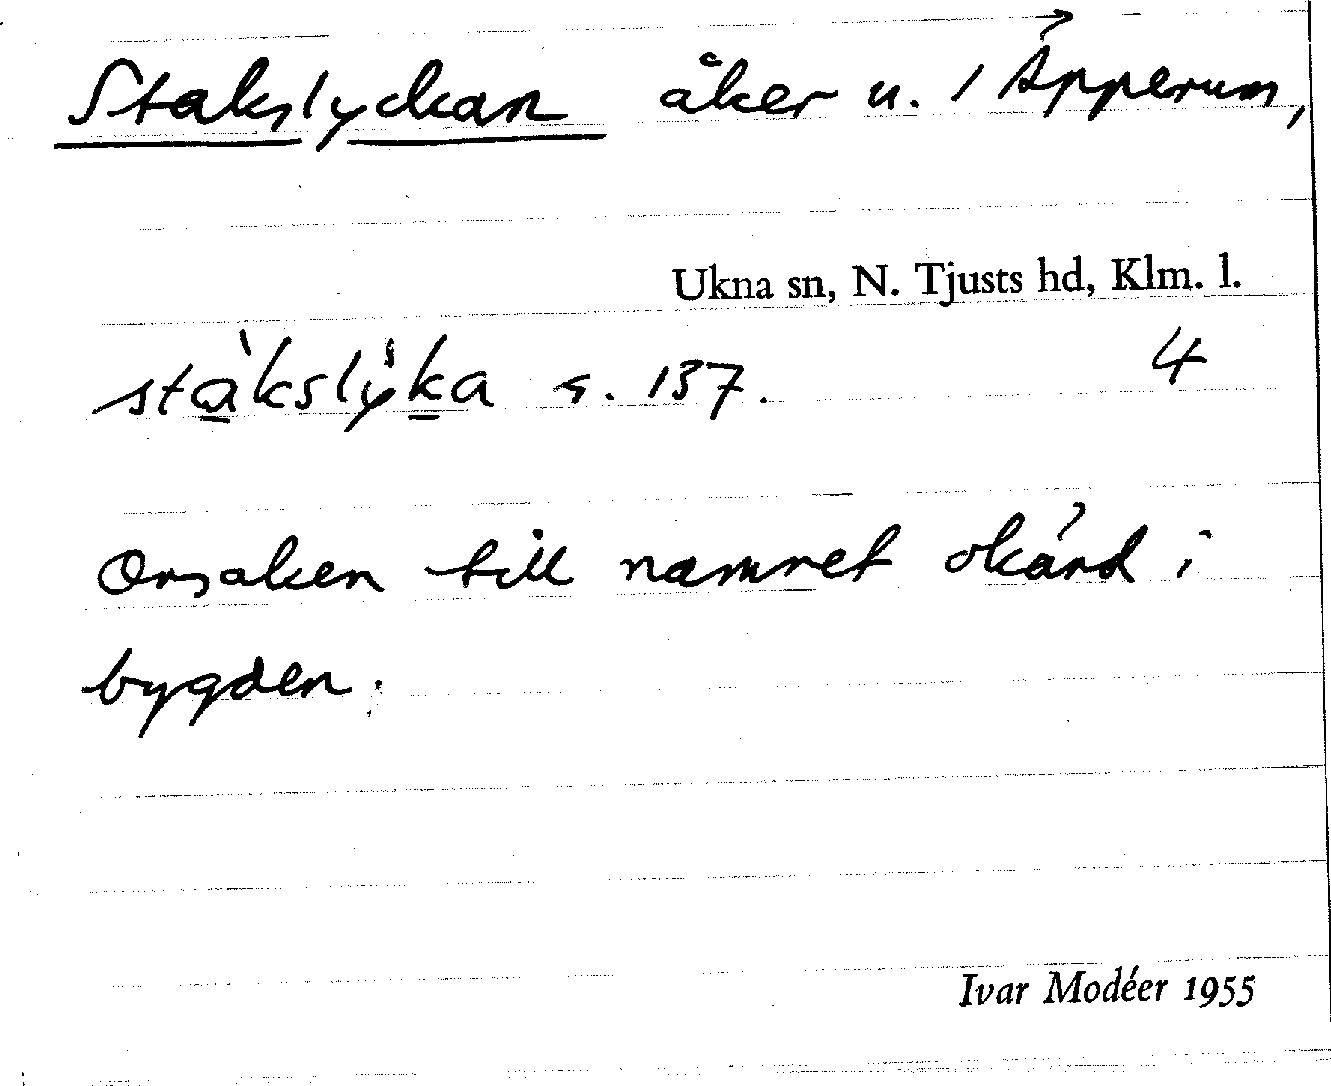 Stakslyckan åker u. 1 Äpperum,
Ukna sn, N. Tjusts hd, Klm. l.
stàkslýka s. 137. 4
Orsaken till namnet okänd i
bygden.
Ivar Modéer 1955